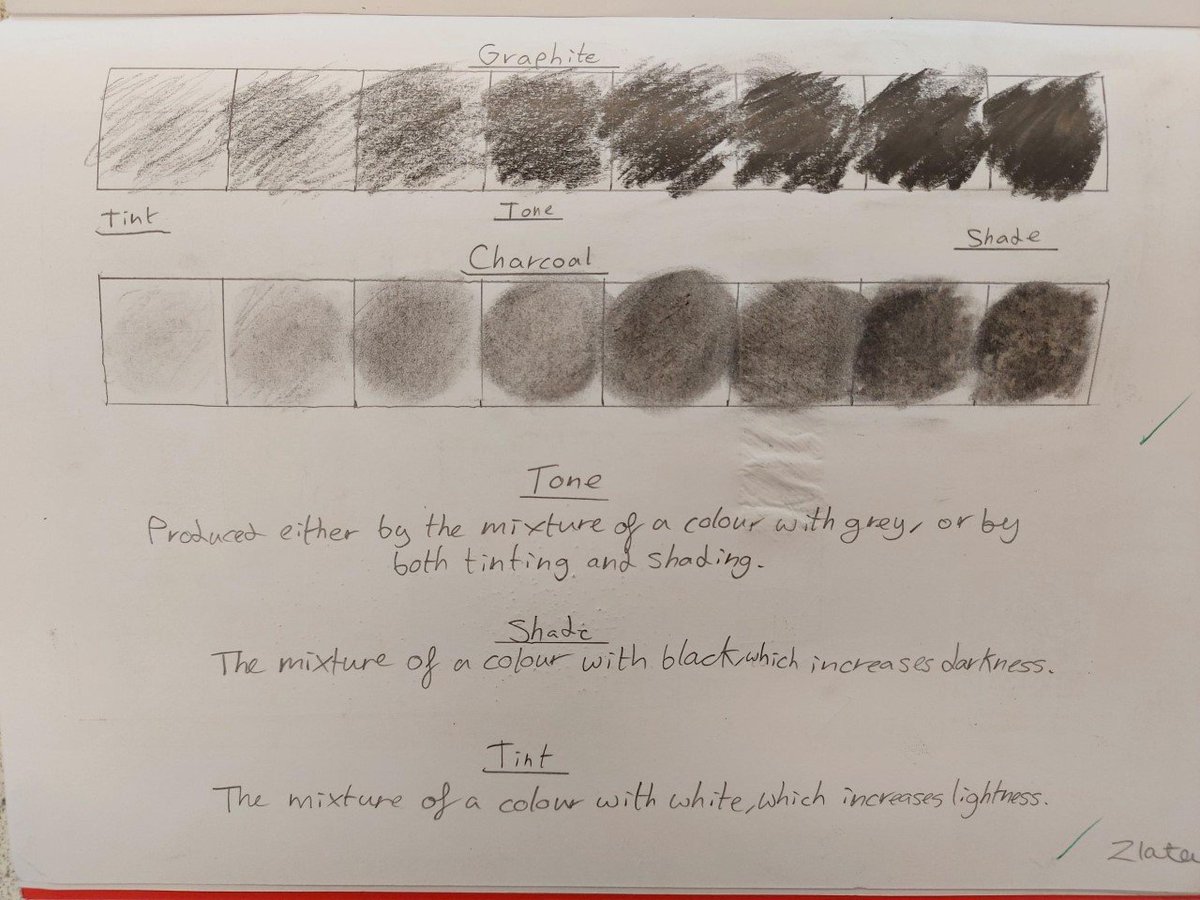 Graphite
Tint
Tone
Shade
Charcoal
Tone
Produced either by the mixture of a colour with grey, or by
both tinting and shading.
Shade
The mixture of a colour with black, which increases darkness.
Tint
The mixture of a colour with white, which increases lightness.
Zlata